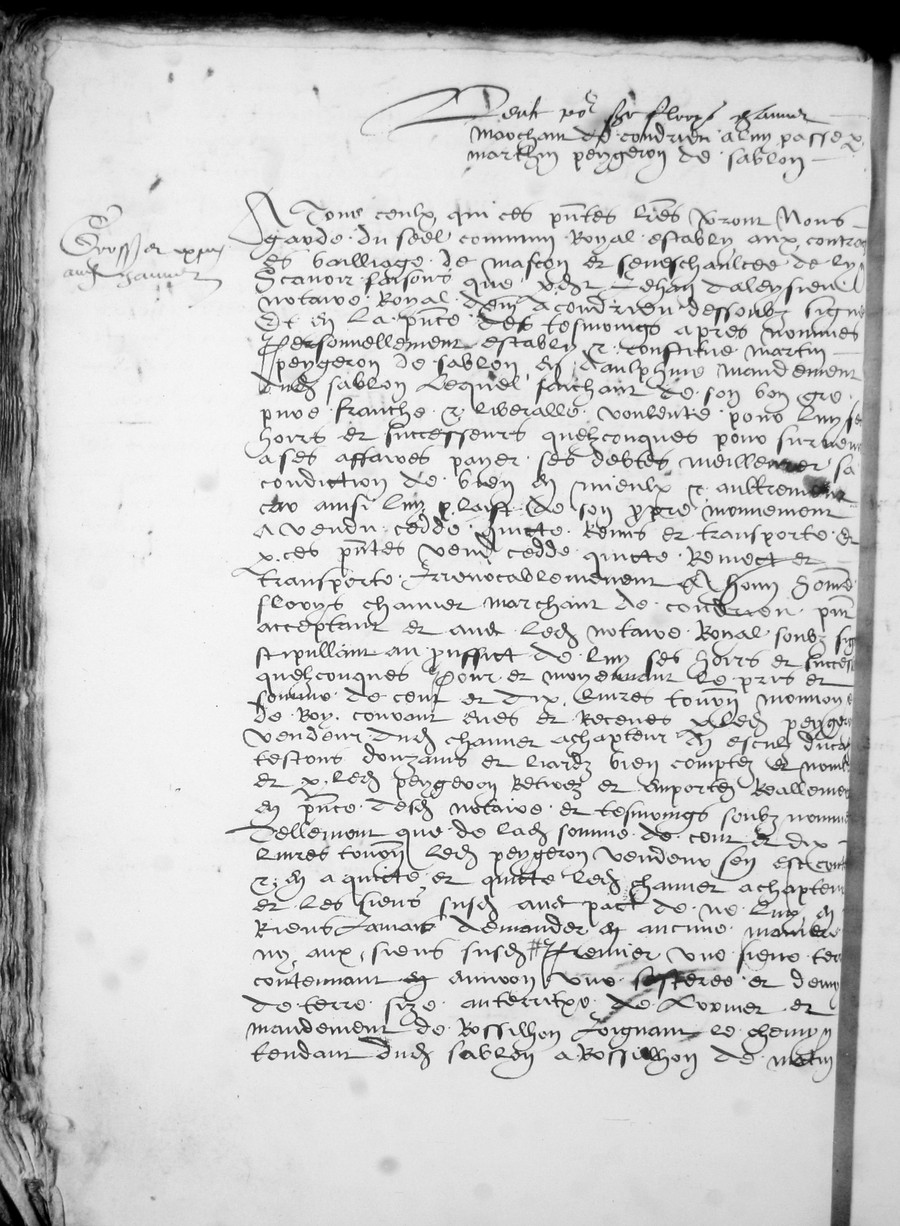 Vente po^r sire Floris Chanier
marchant de Condrieu a luy passe p
Marthin Peygeron de Sablon
Gross et exp
aud Chanier
A Tous ceulx qui ces pntes lres verront Nous
garde du seel commun Royal estably aux contra
es bailliage de Mascon et seneschaulcee de Ly
Scavoir faisons que p Jehan Daleysieu
notaire Royal dem a Condrieu dessoubz signe
Et en la pnce des tesmoings apres nommes
Personnellement estably & constitue Martin
Peygeron de Sablon en Daulphine mandement
dud Sablon Lequel saichant de son bon gre
pure franche & liberalle voulente pour luy se
hoirs et successeurs quelzconques pour surven
a ses affaires payer ses debtes meilleurer sa
condiction de bien en mieulx & aultrement
car ainsi luy plaist de son propre mouvement
a vendu cedde quicte Remis et transporte et
p ces pntes vend cedde quicte Remect et
transporte Irrevocablement A honn homme
Floris Chanier marchant de Condrieu pnt
acceptant et avec led notaire Royal soubz sig
stipullant au prouffict de luy ses hoirs et succes
quelzconques Pour et moyennant le pris et
somme de cent et dix livres tourn monnoye
de Roy courant eues et Receues p led Peyger
vendeur dud Chanier achapteur En escuz ducatz
testons douzains et liardz bien comptez et nom
et p led Peygeron Retirez et emportez Reallemen
en pnce desd notaire et tesmoings soubz nomme
Tellement que de lad somme de cent et dix
livres tourn led Peygeron vendeur sen est cont
& en a quicte et quicte led Chanier achapteur
et les siens susd avec pact de ne luy en
Riens Jamais demander en aucune maniere
ny aux siens susd # Premier une piece ter
contenant en environ une sesteree et demy
de terre size au territoire de Lormer et
mandement de Rossilhon Joignant le chemyn
tendant dud Sablon a Rossilhon de matin